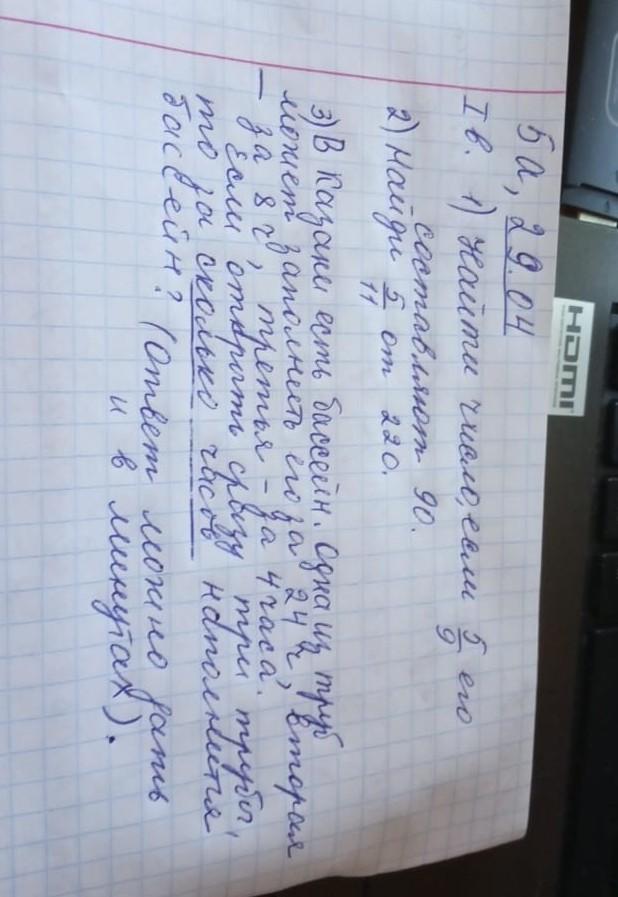 5а, 29.04
I в. 1) Найти число, если 5/9 его
составляют 90.
2) Найди 5/11 от 220.
3) В Казани есть бассейн. Одна из труб
может заполнить его за 24 ч, вторая
– за 8 ч, третья – за 4 часа.
Если открыть сразу три трубы,
то за сколько часов наполнится
бассейн? (Ответ можно дать
и в минутах).
HDMI